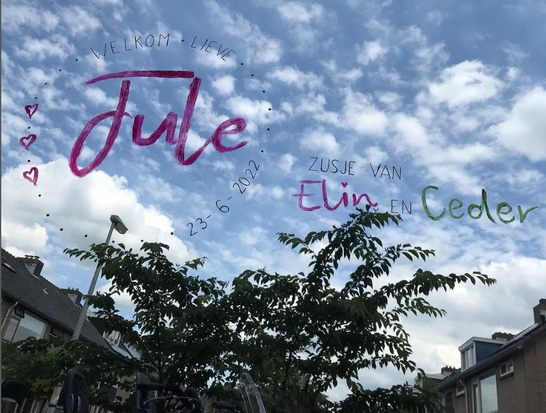 WELKOM · LIEVE
Jule
23-6-2022
ZUSJE VAN
Elin EN Ceder